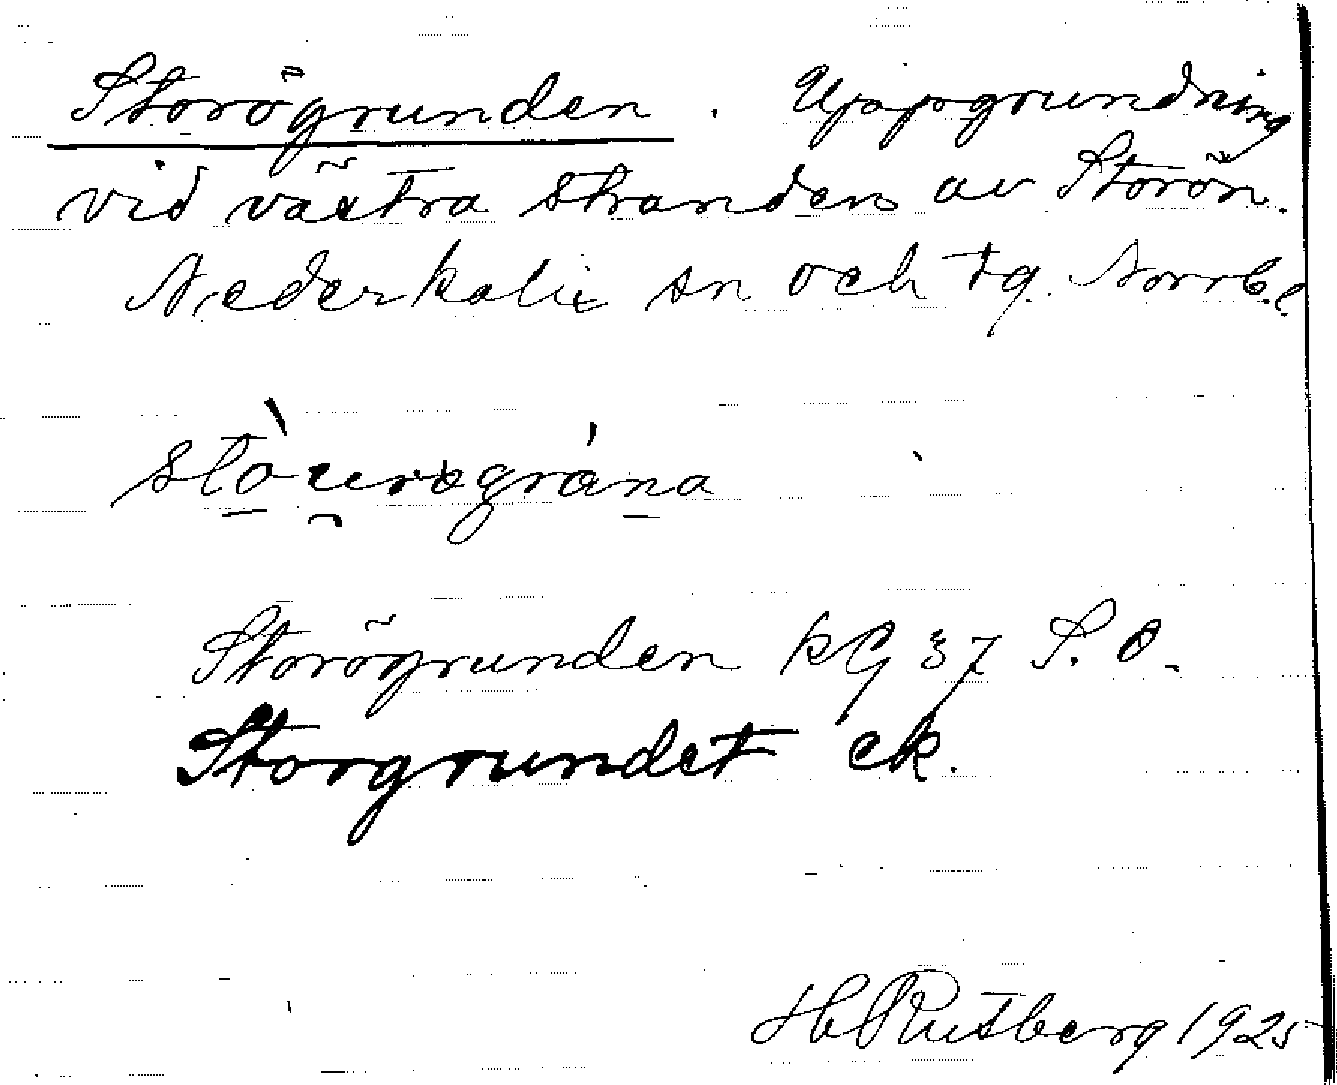 Storögrunden. Uppgrundning
vid västra stranden av Storön.
Nederkalix sn och tg. Norrb. l
Storögrunden kG 37 S. O.
Storgrundet ek.
H Rutberg 1925